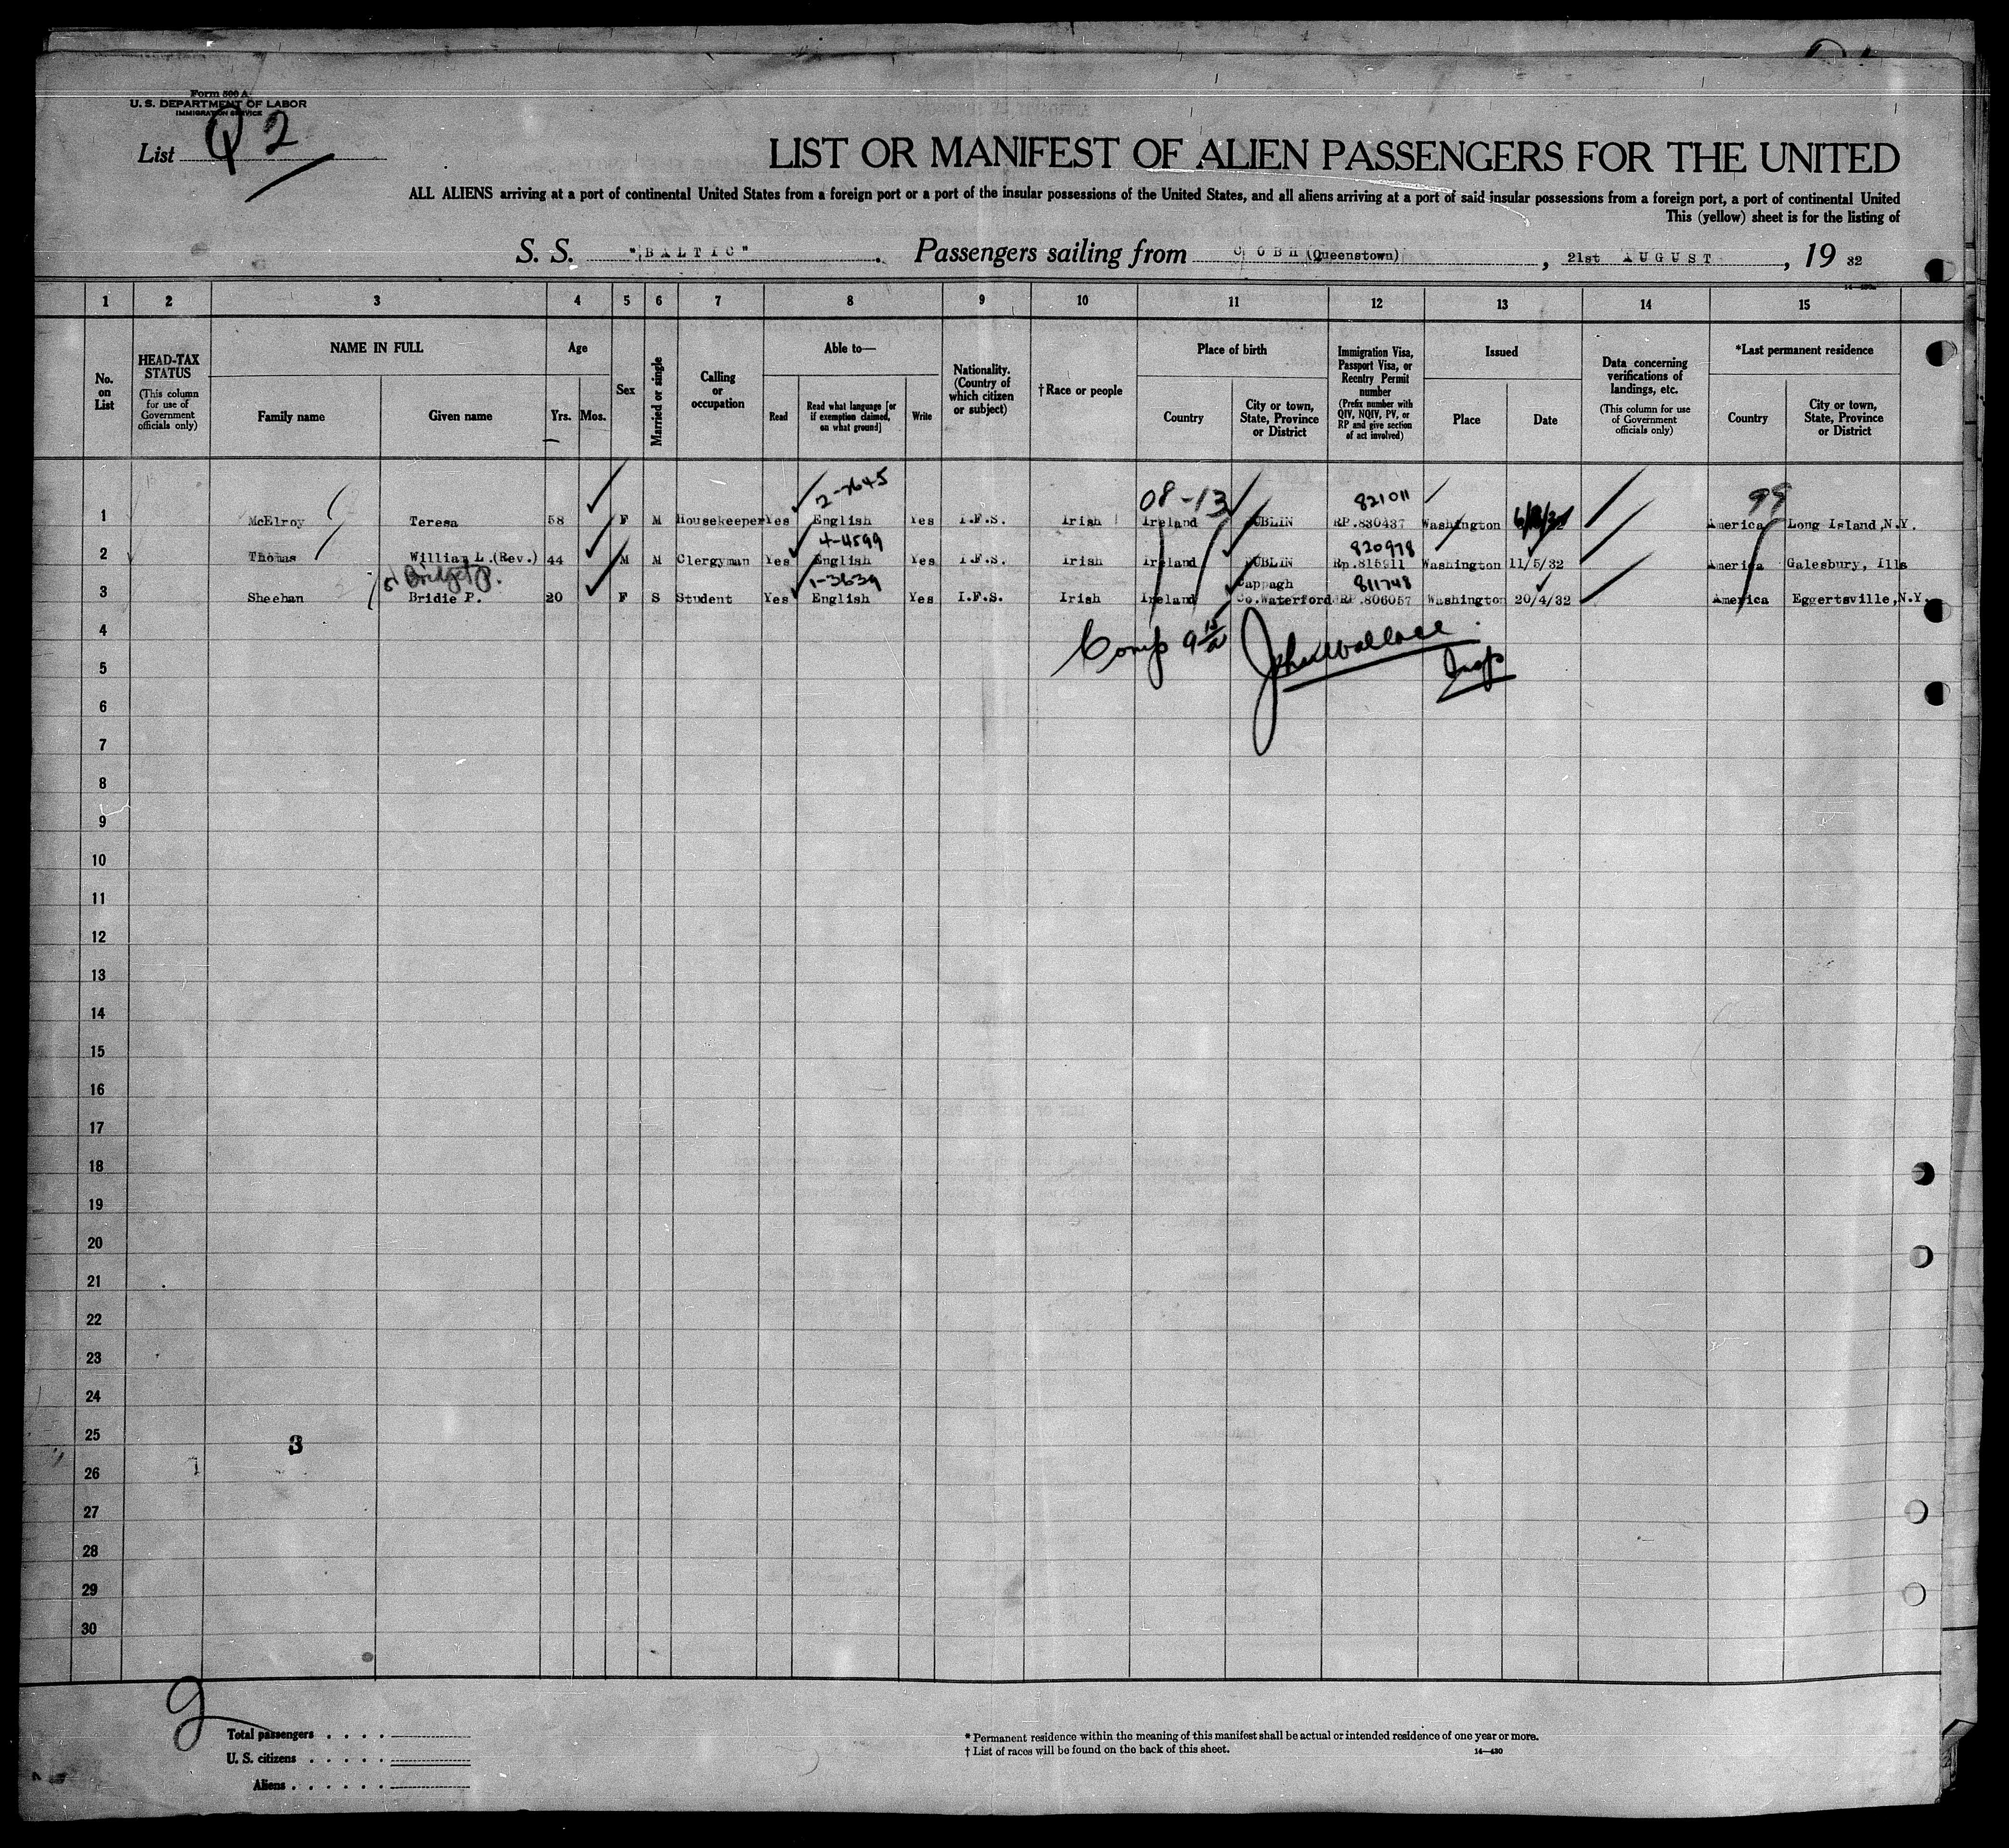 Form 500 A
U. S. DEPARTMENT OF LABOR
IMMIGRATION SERVICE
List Q 2
LIST OR MANIFEST OF ALIEN PASSENGERS FOR THE UNITED
ALL ALIENS arriving at a port of continental United States from a foreign port or a port of the insular possessions of the United States, and all aliens arriving at a port of said insular possessions from a foreign port, a port of continental United
This (yellow) sheet is for the listing of
S. S. "BALTIC". Passengers sailing from COBH (Queenstown), 21st AUGUST, 19 32
1 2 3 4 5 6 7 8 9 10 11 12 13 14 15
No. on List
HEAD-TAX STATUS
(This column for use of Government officials only)
NAME IN FULL
Family name
Given name
Age
Yrs. Mos.
Sex
Married or single
Calling or occupation
Able to—
Read
Read what language [or if exemption claimed, on what ground]
Write
Nationality. (Country of which citizen or subject)
†Race or people
Place of birth
Country
City or town, State, Province or District
Immigration Visa, Passport Visa, or Reentry Permit number
(Prefix number with QIV, NQIV, PV, or RP and give section of act involved)
Issued
Place
Date
Data concerning verifications of landings, etc.
(This column for use of Government officials only)
*Last permanent residence
Country
City or town, State, Province or District
2-7645 08-13 821011 99
1 McElroy Teresa 58 F M Housekeeper Yes English Yes I.F.S. Irish Ireland DUBLIN RP.830437 Washington America Long Island, N.Y.
4-4599 820978
2 Thomas William L.(Rev.) 44 M M Clergyman Yes English Yes I.F.S. Irish Ireland DUBLIN Rp.815911 Washington 11/5/32 America Galesbury, Ills
Bridget P. 1-3639 Cappagh 811748
3 Sheehan Bridie P. 20 F S Student Yes English Yes I.F.S. Irish Ireland Co.Waterford RP.806057 Washington 20/4/32 America Eggertsville, N.Y.
4 Comp John Wallace
5 Insp
6
7
8
9
10
11
12
13
14
15
16
17
18
19
20
21
22
23
24
25 3
26
27
28
29
30
2
Total passengers . . . .
U. S. citizens . . . . .
Aliens . . . . . .
* Permanent residence within the meaning of this manifest shall be actual or intended residence of one year or more.
† List of races will be found on the back of this sheet. 14—430